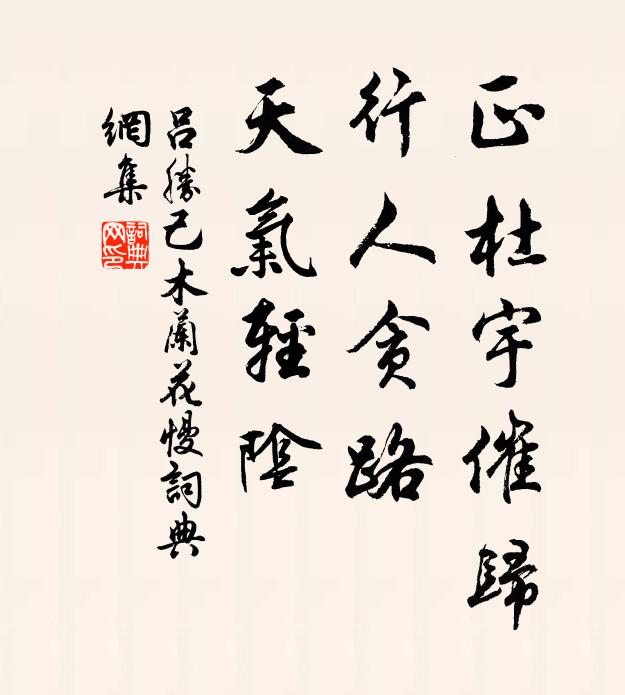 正杜宇催歸
行人貪路
天氣輕陰
呂勝己木蘭花慢詞典
網集
詞典
网印